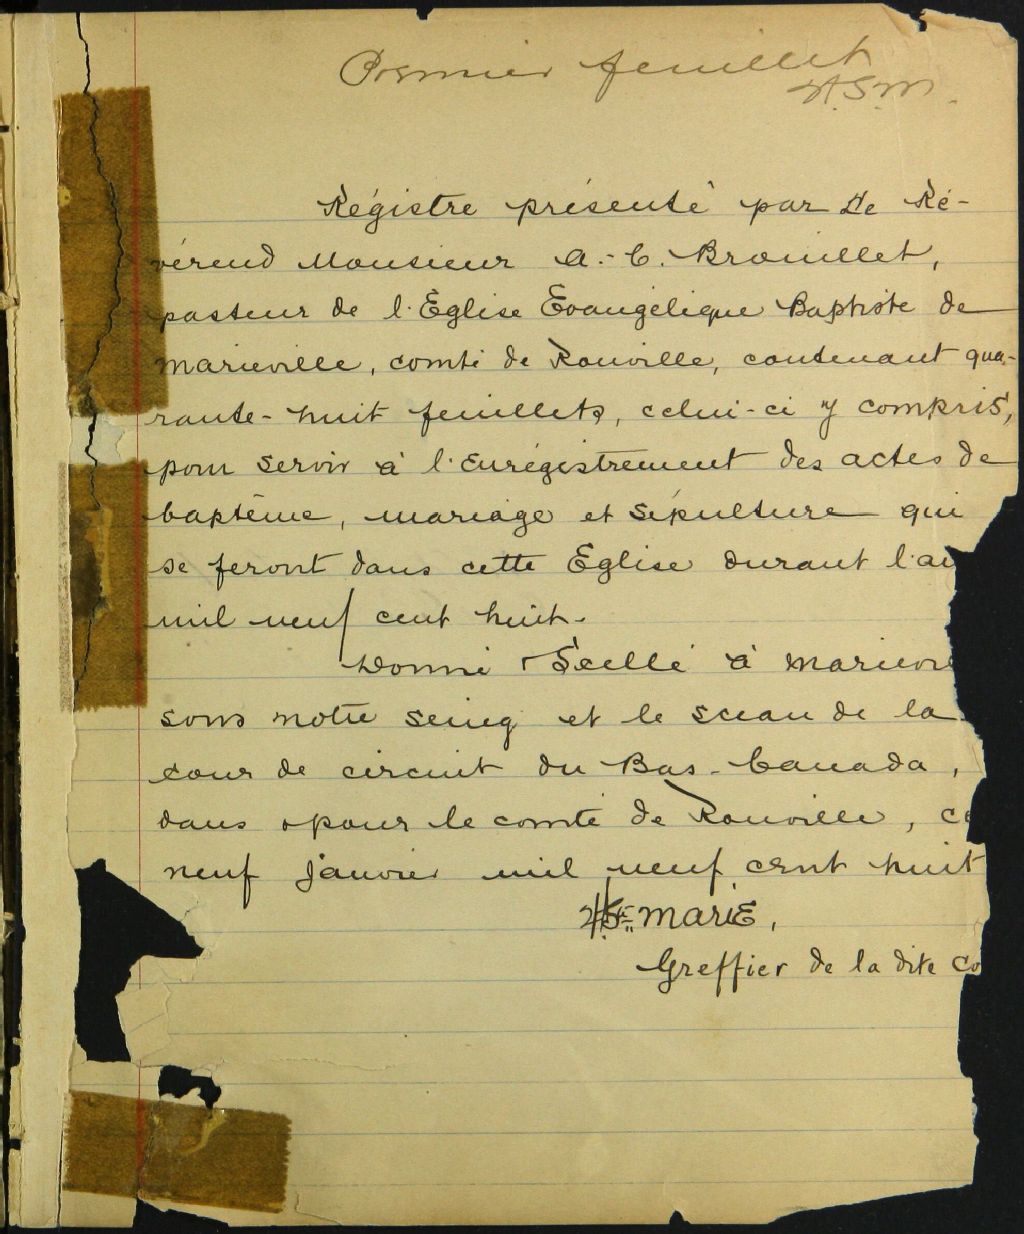 Premier feuillet
H.S.M.
Régistre présenté par Le Ré-
vérend Monsieur A.-C. Brouillet,
pasteur de l'Église Évangélique Baptiste de
Marieville, comté de Rouville, contenant qua-
rante-huit feuillets, celui-ci y compris,
pour servir à l'enrégistrement des actes de
baptême, mariage et sépulture qui
se feront dans cette Eglise durant l'an
mil neuf cent huit.
Donné & Scellé à Marievi
sous notre seing et le sceau de la
cour de circuit du Bas-Canada,
dans & pour le comté de Rouville, ce
neuf janvier mil neuf cent huit
H. Ste Marie,
Greffier de la dite Co